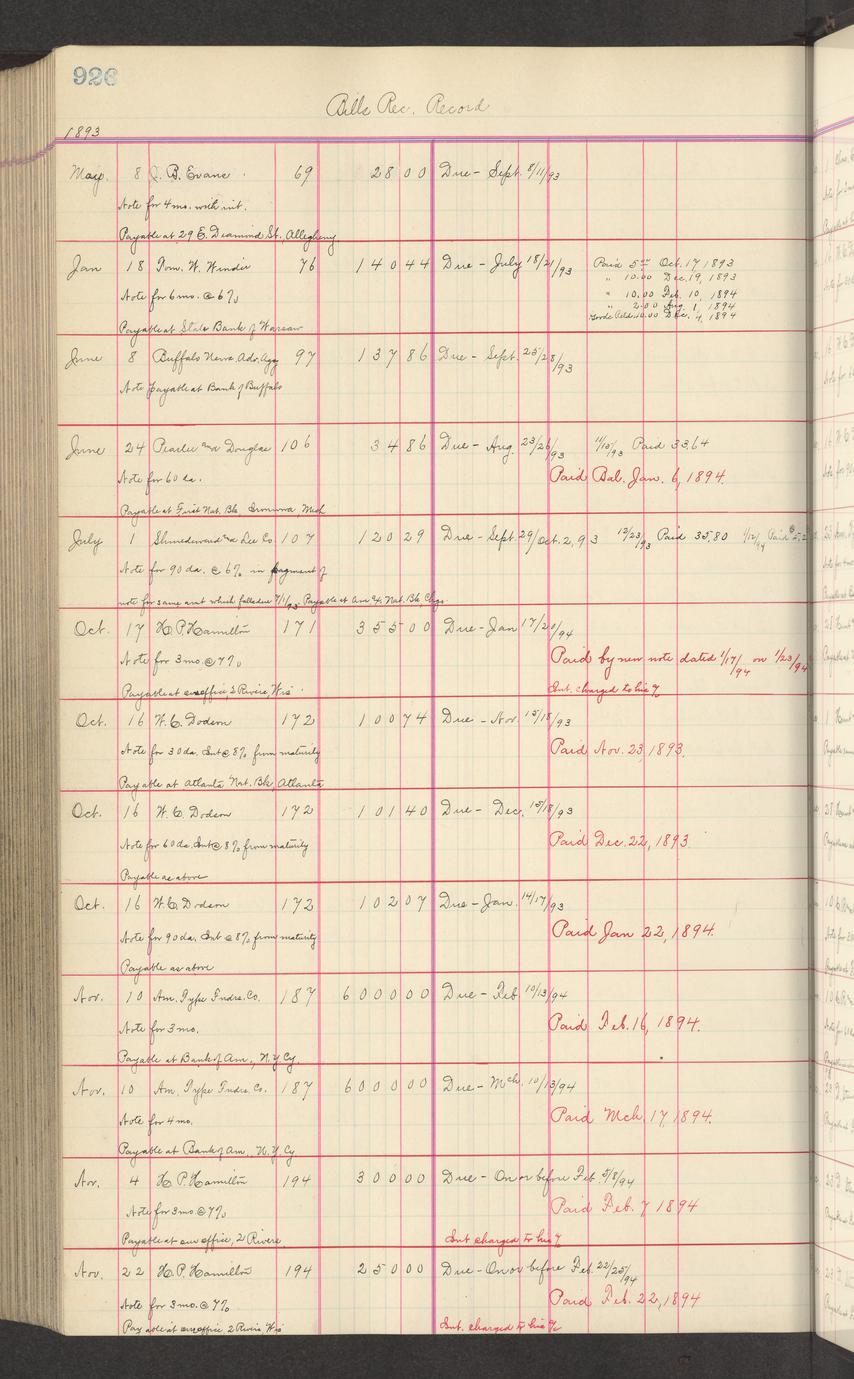 926
Bills Rec. Record
1893
May. 8 J. B. Evans 69 28 00 Due - Sept. 8/11/93
Note for 4 mo. with int.
Payable at 29 E. Diamond St. Allegheny
Jan 18 Tom. W. Winder 76 140 44 Due - July 18/21/93 Paid 5.00 Oct. 17 1893
" 10.00 Dec. 19, 1893
Note for 6 mo. @ 6% " 10.00 Feb. 10, 1894
" 2.00 Aug. 1, 1894
Payable at State Bank of Warsaw Goods Retd. 10.00 Dec. 4, 1894
June 8 Buffalo News Adv. Agy 97 137 86 Due - Sept. 25/28/93
Note Payable at Bank of Buffalo
June 24 Pearlee and Douglas 106 34 86 Due - Aug. 23/26/93 11/10/93 Paid 33.64
Note for 60 da. Paid Bal. Jan. 6, 1894.
Payable at First Nat. Bk. Mich
July 1 Lee Co 107 120 29 Due - Sept. 29/Oct. 2, 93 12/23/93 Paid 35.80 1/12/94 Paid
Note for 90 da. @ 6% in payment of
note for same amt which falls due 7/1/93. Payable at Am Ex. Nat. Bk Chgo.
Oct. 17 H. P. Hamilton 171 355 00 Due - Jan 17/20/94
Note for 3 mo. @ 7% Paid by new note dated 1/17/94 on 1/23/94
Payable at our office, 2 Rivers, Wis. Int. charged to his %
Oct. 16 W. C. Dodson 172 100 74 Due - Nov. 15/18/93
Note for 30 da. Int @ 8% from maturity Paid Nov. 23, 1893.
Payable at Atlanta Nat. Bk, Atlanta
Oct. 16 W. C. Dodson 172 101 40 Due - Dec. 15/18/93
Note for 60 da. Int @ 8% from maturity Paid Dec. 22, 1893.
Payable as above
Oct. 16 W. C. Dodson 172 102 07 Due - Jan. 14/17/93
Note for 90 da. Int @ 8% from maturity Paid Jan 22, 1894.
Payable as above
Nov. 10 Am. Type Fndrs. Co. 187 6000 00 Due - Feb. 10/13/94
Note for 3 mo. Paid Feb. 16, 1894.
Payable at Bank of Am., N. Y. Cy.
Nov. 10 Am. Type Fndrs. Co. 187 6000 00 Due - Mch. 10/13/94
Note for 4 mo. Paid Mch 17, 1894.
Payable at Bank of Am., N. Y. Cy
Nov. 4 H. P. Hamilton 194 300 00 Due - On or before Feb. 5/8/94
Note for 3 mo @ 7% Paid Feb. 7 1894
Payable at our office, 2 Rivers Int charged to his %
Nov. 22 H. P. Hamilton 194 250 00 Due - On or before Feb. 22/25/94
Note for 3 mo. @ 7% Paid Feb. 22, 1894
Payable at our office 2 Rivers Wis Int. charged to his %